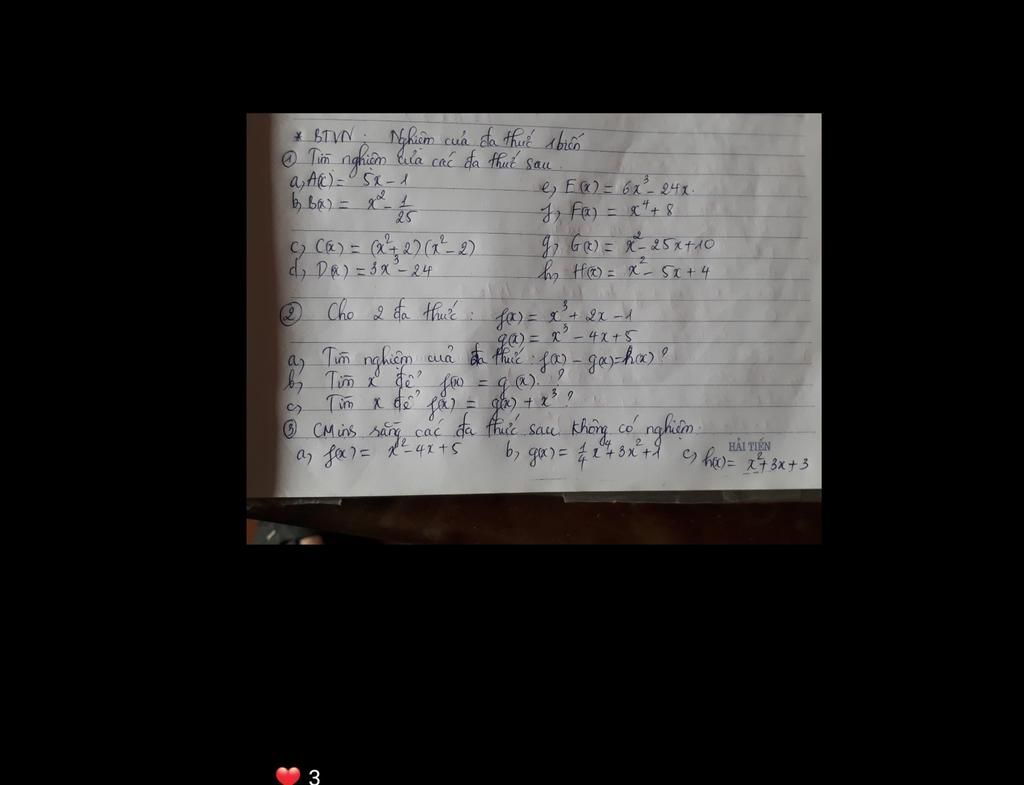 * BTVN: Nghiệm của đa thức 1 biến
① Tìm nghiệm của các đa thức sau.
a, A(x) = 5x - 1
e, E(x) = 6x³ - 24x.
b, B(x) = x² - 1/25
f, F(x) = x⁴ + 8
c, C(x) = (x² + 2)(x² - 2)
g, G(x) = x² - 25x + 10
d, D(x) = 3x³ - 24
h, H(x) = x² - 5x + 4
② Cho 2 đa thức: f(x) = x³ + 2x - 1
g(x) = x³ - 4x + 5
a, Tìm nghiệm của đa thức: f(x) - g(x) = h(x)?
b, Tìm x để f(x) = g(x).?
c, Tìm x để f(x) = g(x) + x³?
③ CMinh rằng các đa thức sau không có nghiệm.
HẢI TIẾN
a, f(x) = x² - 4x + 5 b, g(x) = 1/4 x⁴ + 3x² + 1 c, h(x) = x² + 3x + 3
❤ 3